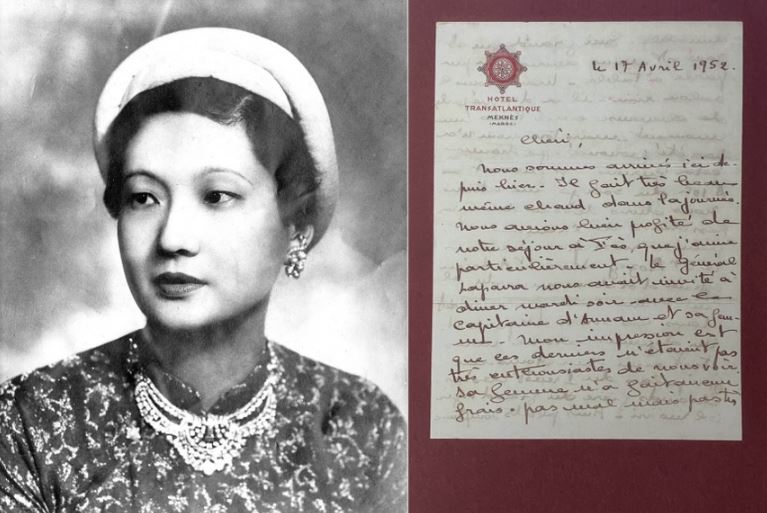 HOTEL
TRANSATLANTIQUE
MEKNÈS
(MAROC)
le 17 Avril 1952.
chéri,
Nous sommes arrivés ici de-
puis hier. Il fait très beau
même chaud dans la journée.
Nous avions bien profité de
notre séjour à Fès, que j'aime
particulièrement, le Général
nous avait invité à
dîner mardi soir avec le
capitaine d'Annam et sa fem-
me. Mon impression est
que ces derniers n'étaient pas
très enthousiastes de nous voir.
Sa femme n'a fait aucun
frais. pas mal mais pas très